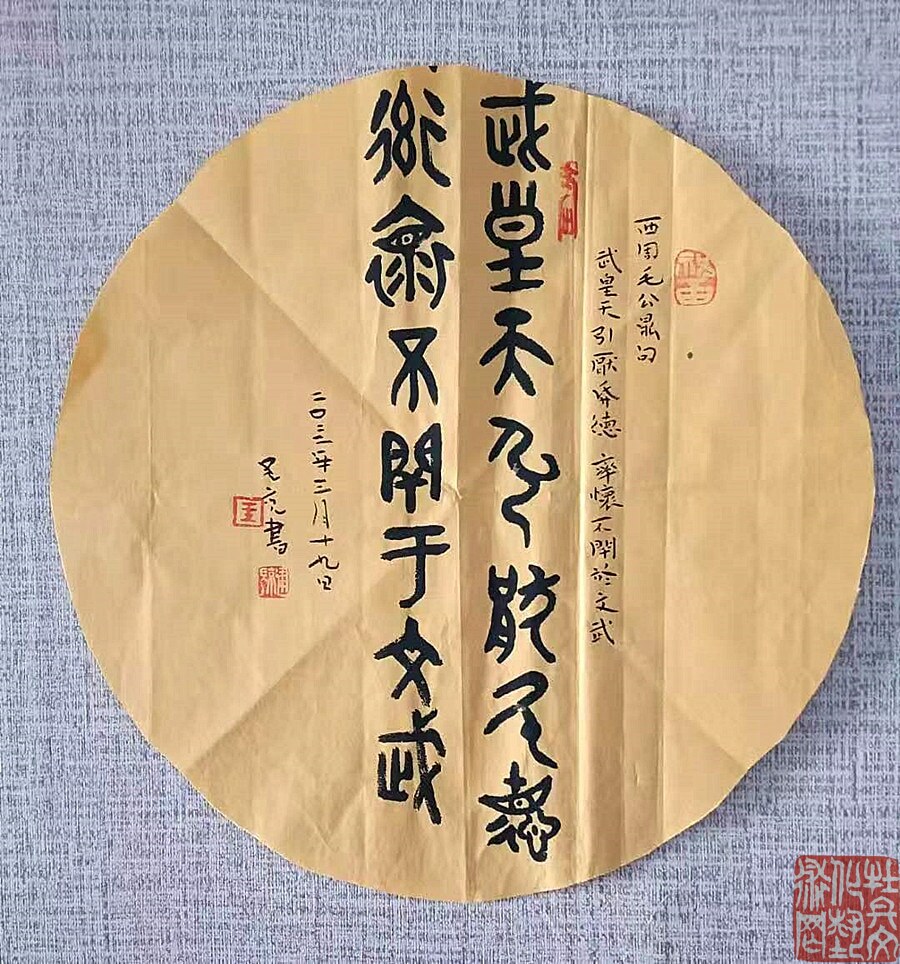 西周毛公鼎句
武皇天引厭氒德 率懷不閈於文武
武皇天引厭氒德
率褱不閈于文武
二〇二三年三月十九日
書